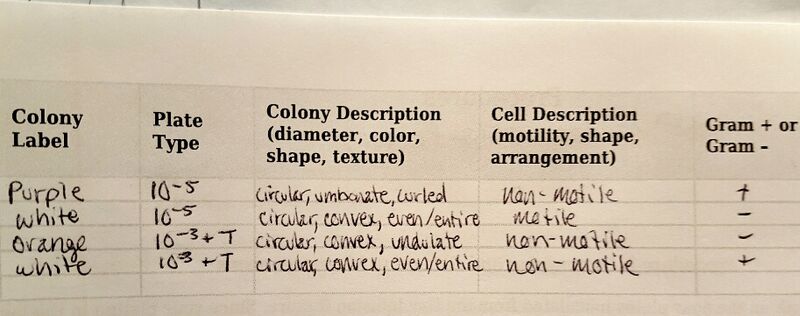 Colony Label | Plate Type | Colony Description (diameter, color, shape, texture) | Cell Description (motility, shape, arrangement) | Gram + or Gram -
Purple | 10⁻⁵ | circular, umbonate, curled | non-motile | +
white | 10⁻⁵ | circular, convex, even/entire | motile | -
orange | 10⁻³ + T | circular, convex, undulate | non-motile | -
white | 10³ + T | circular, convex, even/entire | non-motile | +